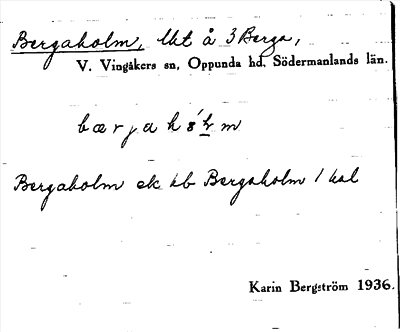 Bergaholm, lht å 3 Berga,
V. Vingåkers sn, Oppunda hd, Södermanlands län.
bærjah
Bergaholm ek kb Bergaholm 1 kal
Karin Bergström 1936.